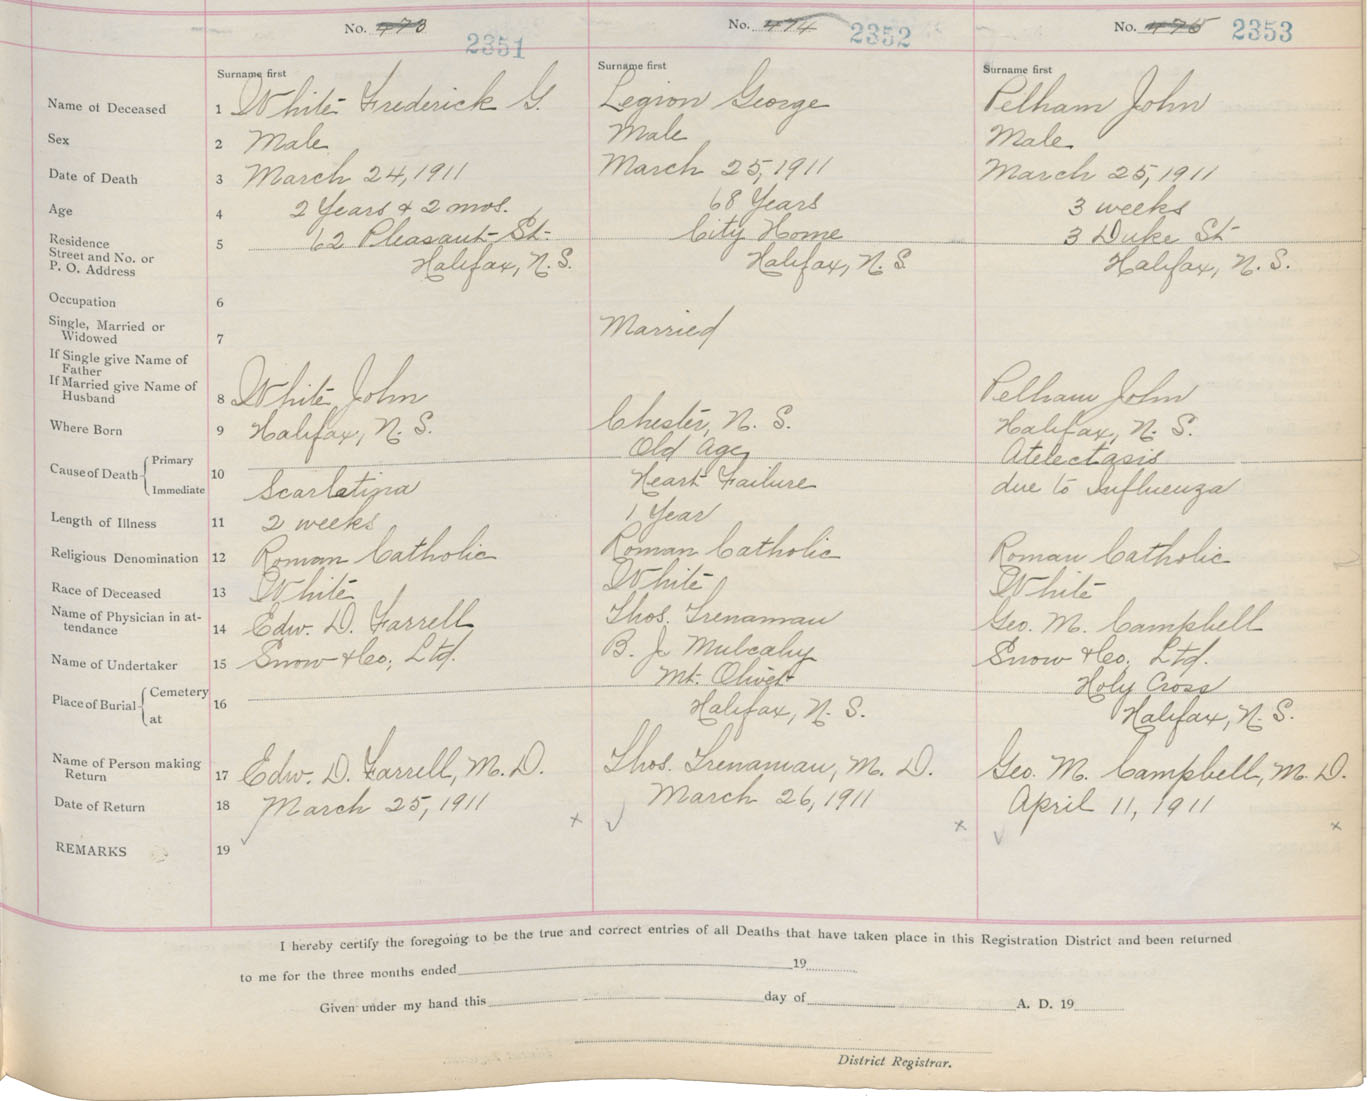 No. 473 2351
No. 474 2352
No. 475 2353
Surname first
Surname first
Surname first
Name of Deceased 1 White Frederick G. Legion George Pelham John
Sex 2 Male Male Male
Date of Death 3 March 24, 1911 March 25, 1911 March 25, 1911
Age 4 2 Years & 2 mos. 68 Years 3 weeks
Residence 5 62 Pleasant St. City Home 3 Duke St
Street and No. or
P. O. Address Halifax, N. S. Halifax, N. S. Halifax, N. S.
Occupation 6
Single, Married or
Widowed 7 Married
If Single give Name of
Father
If Married give Name of
Husband 8 White, John Pelham John
Where Born 9 Halifax, N. S. Chester, N. S. Halifax, N. S.
Cause of Death 10 Primary Old Age Atelectasis
Immediate Scarlatina Heart Failure due to Influenza
Length of Illness 11 2 weeks 1 Year
Religious Denomination 12 Roman Catholic Roman Catholic Roman Catholic
Race of Deceased 13 White White White
Name of Physician in at-
tendance 14 Edw. D. Farrell Thos. Trenaman Geo. M. Campbell
Name of Undertaker 15 Snow & Co, Ltd. B. J. Mulcahy Snow & Co, Ltd.
Place of Burial 16 Cemetery Mt. Olivet Holy Cross
at Halifax, N. S. Halifax, N. S.
Name of Person making
Return 17 Edw. D. Farrell, M. D. Thos. Trenaman, M. D. Geo. M. Campbell, M. D.
Date of Return 18 March 25, 1911 March 26, 1911 April 11, 1911
REMARKS 19
I hereby certify the foregoing to be the true and correct entries of all Deaths that have taken place in this Registration District and been returned
to me for the three months ended 19
Given under my hand this day of A. D. 19
District Registrar.